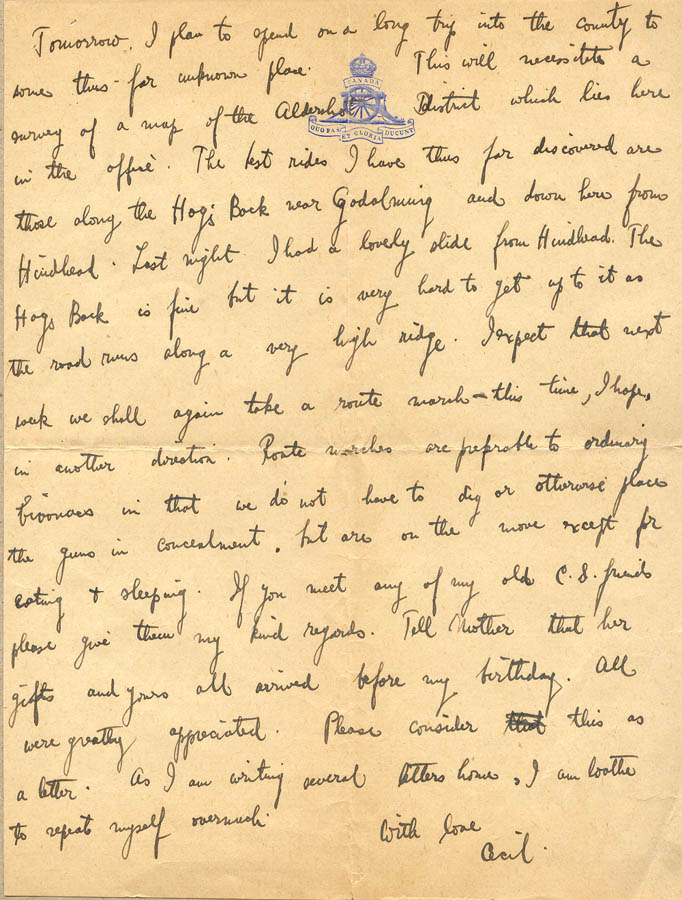 Tomorrow, I plan to spend on a long trip into the county to
some thus-far unknown place. This will necessitate a
CANADA
survey of a map of the Aldershot District which lies here
QUO FAS ET GLORIA DUCUNT
in the office. The best rides I have thus far discovered are
those along the Hogs Back near Godalming and down here from
Hindhead. Last night I had a lovely slide from Hindhead. The
Hogs Back is fine but it is very hard to get up to it as
the road runs along a very high ridge. I expect that next
week we shall again take a route march - this time, I hope,
in another direction. Route marches are preprable to ordinary
bivouacs in that we do not have to dig or otherwise place
the guns in concealment, but are on the move except for
eating + sleeping. If you meet any of my old C.S. friends
please give them my kind regards. Tell Mother that her
gifts and yours all arrived before my birthday. All
were greatly appreciated. Please consider that this as
a letter. As I am writing several letters home, I am loathe
to repeat myself overmuch.
With love
Cecil.